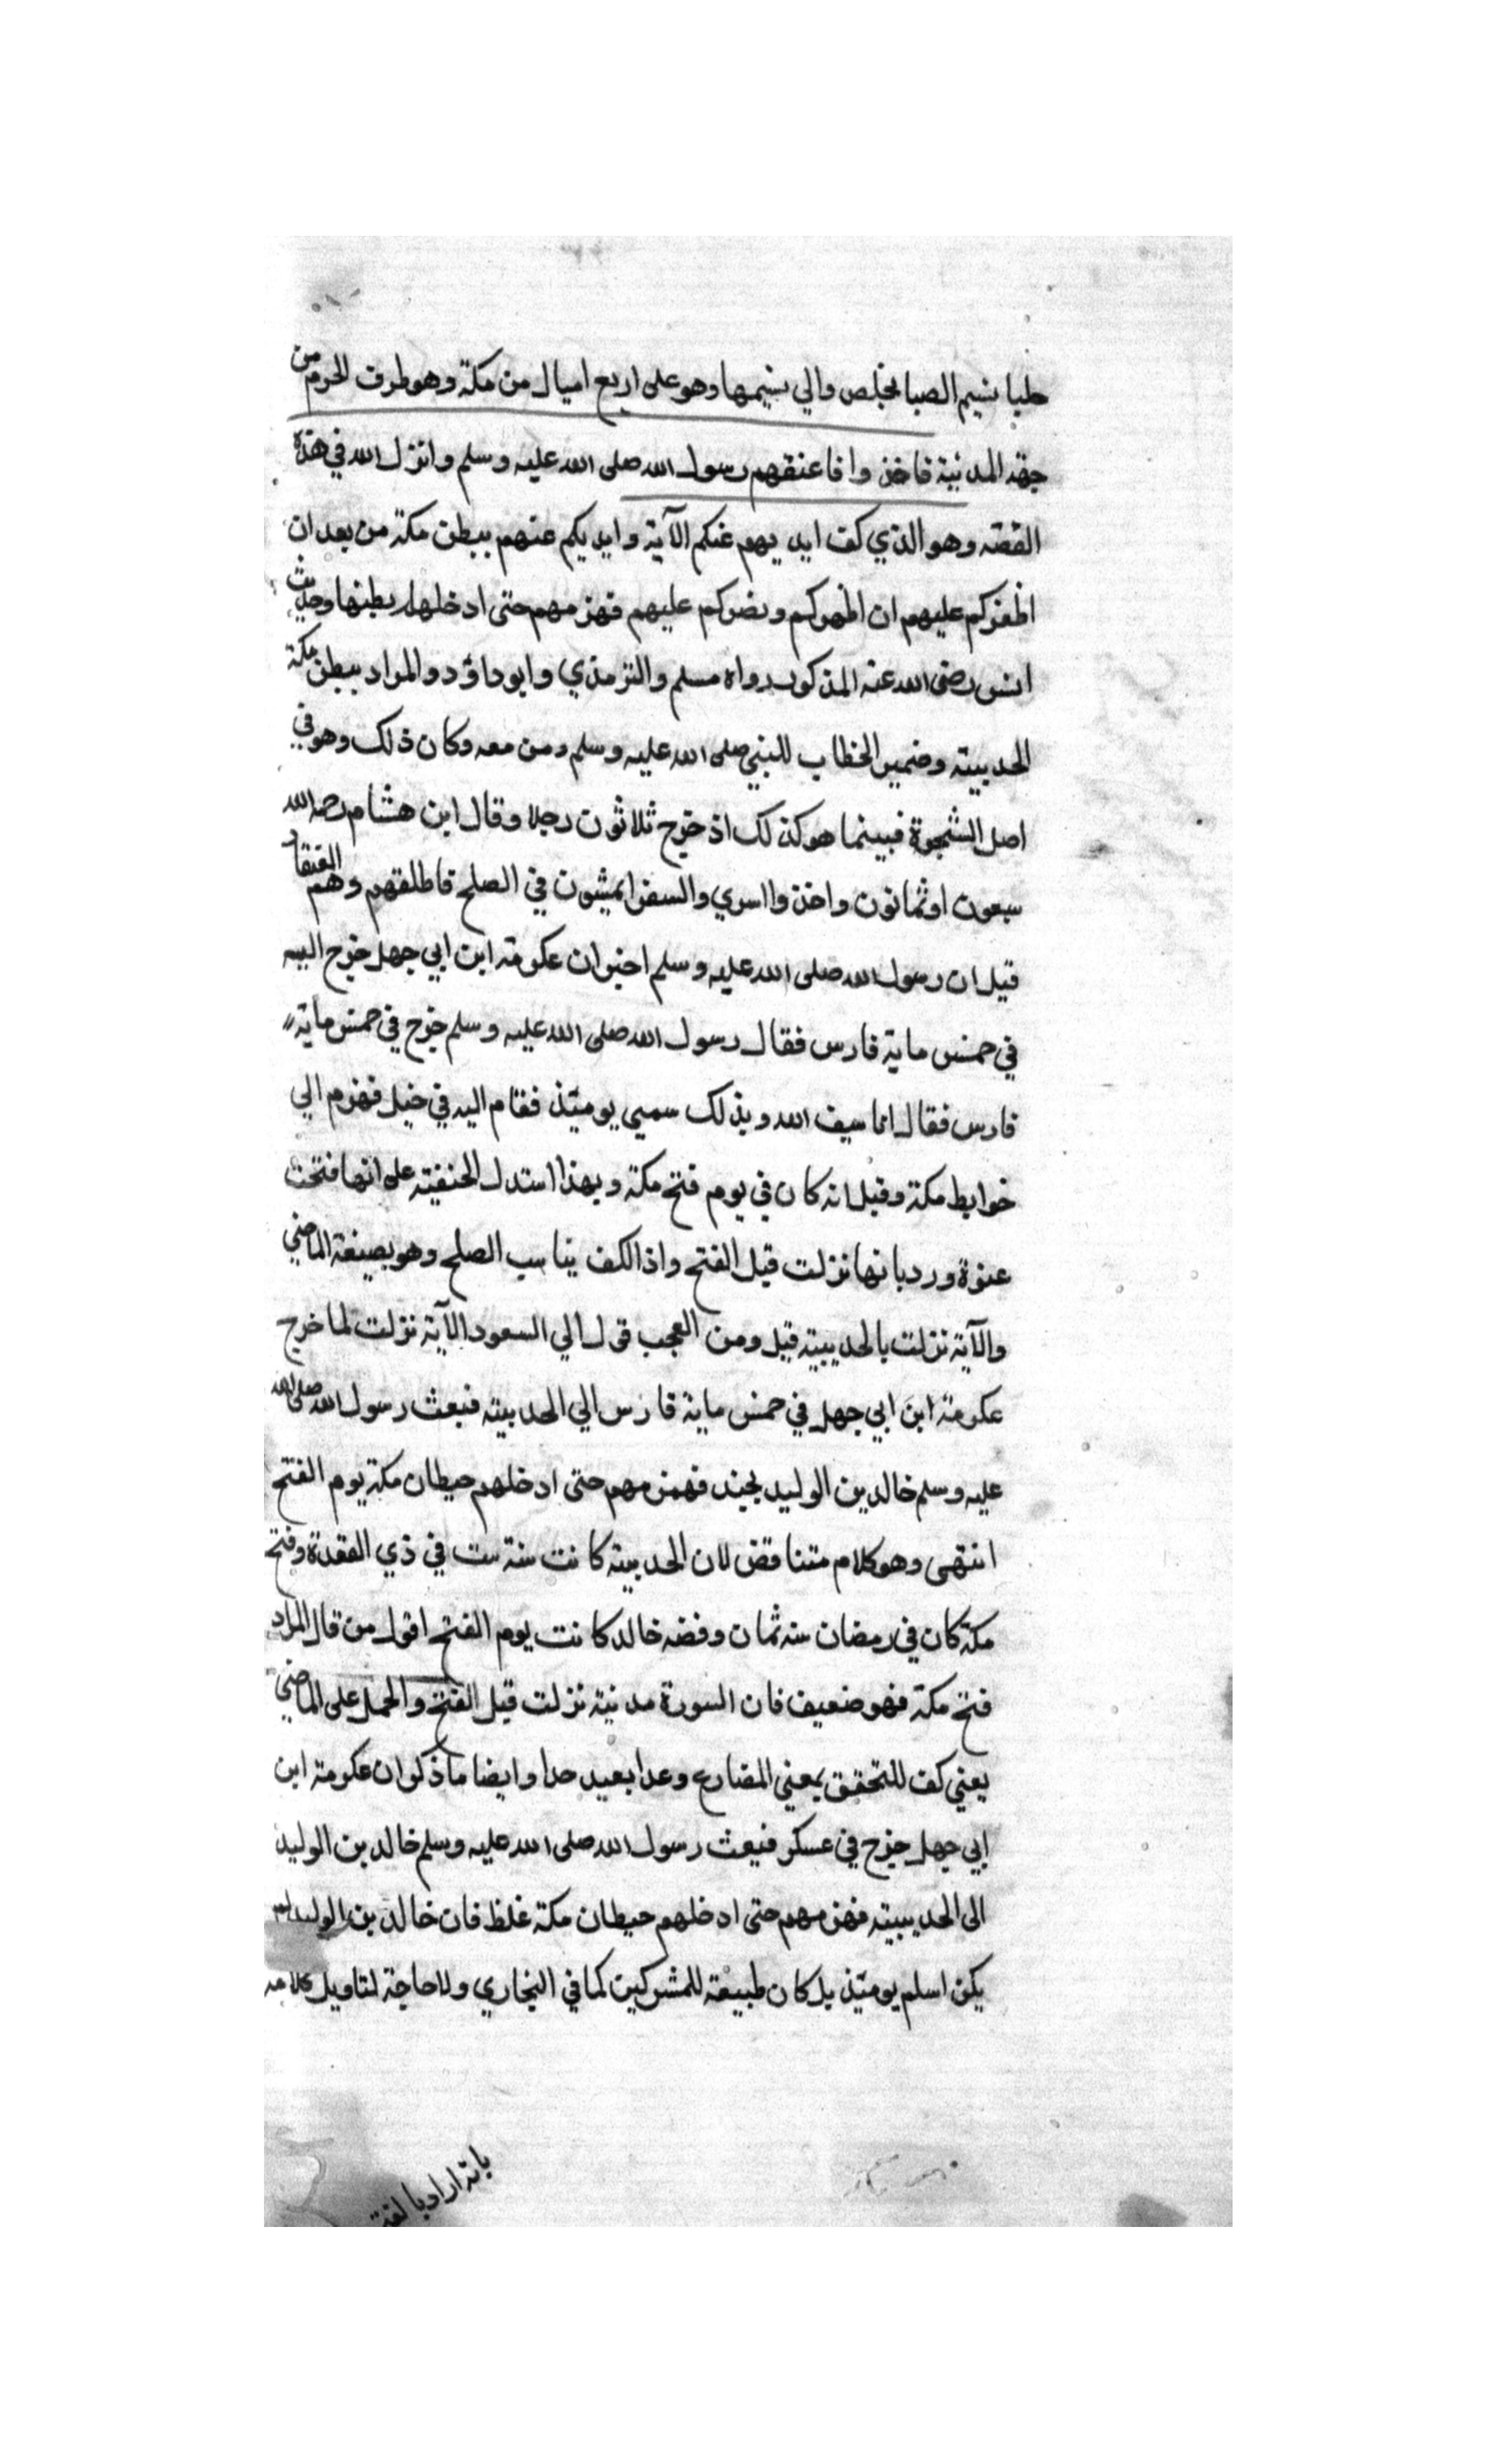 خليا نسيم الصبا يخلص والي نسيمها وهو على اربع اميال من مكة وهو طرف الحرم من
جهة المدينة فاخذوا فاعتقهم رسول الله صلى الله عليه وسلم وانزل الله في هذه
القصة وهو الذي كف ايديهم عنكم الآية وايديكم عنهم ببطن مكة من بعد ان
اظفركم عليهم ان اظهركم ونصركم عليهم فهزمهم حتى ادخلهم بطنها وحديث
انس رضى الله عنه المذكور رواه مسلم والترمذي وابو داؤد والمراد ببطن مكة
الحديبية وضمير الخطاب للنبي صلى الله عليه وسلم ومن معه وكان ذلك وهو في
اصل الشجرة فبينما هو كذلك اذ خرج ثلاثون رجلا وقال ابن هشام رحمه الله
سبعون او ثمانون واخذوا اسري والسفرا يمشون في الصلح فاطلقهم وهم العتقا
قيل ان رسول الله صلى الله عليه وسلم اخبر ان عكرمة ابن ابي جهل خرج اليه
في خمس ماية فارس فقال رسول الله صلى الله عليه وسلم خرج في خمس ماية
فارس فقال انا سيف الله وبذلك سمي يومئذ فقام اليه في خيل فهزم الي
حوايط مكة وقيل انه كان في يوم فتح مكة وبهذا استدل الحنفية على انها فتحت
عنوة ورد بانها نزلت قبل الفتح واذ الكف يناسب الصلح وهو بصيغة الماضي
والآية نزلت بالحديبية قيل ومن العجب قول الي السعود الآية نزلت لما خرج
عكرمة ابن ابي جهل في خمس ماية فارس الي الحديبية فبعث رسول الله صلى الله
عليه وسلم خالد بن الوليد بجند فهزمهم حتى ادخلهم حيطان مكة يوم الفتح
انتهى وهو كلام متناقض لان الحديبية كانت سنة ست في ذي القعدة وفتح
مكة كان في رمضان سنه ثمان وقصه خالد كانت يوم الفتح اقول من قال المراد
فتح مكة فهو ضعيف فان السورة مدنية نزلت قبل الفتح والحمل على الماضي
يعني كف للتحقق بمعني المضارع وعدا بعيد جدا وايضا ما ذكر ان عكرمة ابن
ابي جهل خرج في عسكر فبعث رسول الله صلى الله عليه وسلم خالد بن الوليد
الى الحديبية فهزمهم حتى ادخلهم حيطان مكة غلط فان خالد بن الوليد لم
يكن اسلم يومئذ بل كان طليعة للمشركين كما في البخاري ولا حاجة لتاويل كلامه
بانه اراد بالفتح